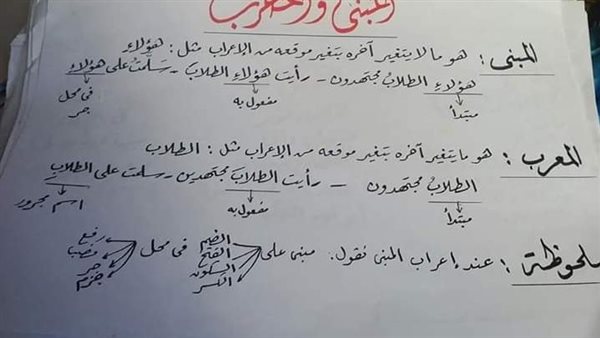 المبنى والمعرب
المبنى : هو ما لا يتغير آخره بتغير موقعه من الإعراب مثل : هؤلاء
هؤلاء الطلاب مجتهدون - رأيت هؤلاء الطلاب - سلمت على هؤلاء
مبتدأ مفعول به فى محل جر
المعرب : هو ما يتغير آخره بتغير موقعه من الإعراب مثل : الطلاب
الطلاب مجتهدون - رأيت الطلاب مجتهدين - سلمت على الطلاب
مبتدأ مفعول به اسم مجرور
ملحوظة : عند إعراب المبنى نقول . مبنى على الضم الفتح السكون الكسر فى محل رفع نصب جر جزم